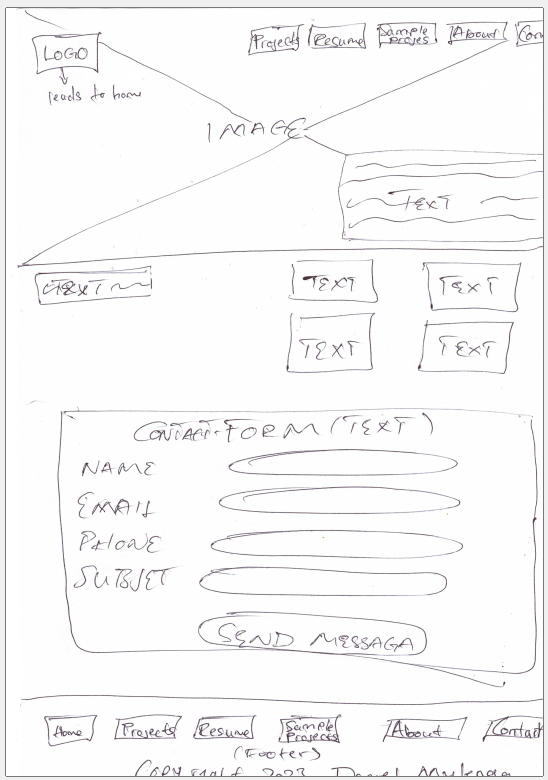 LOGO
leads to home
Projects Resume Sample Projes About Con
IMAGE
TEXT
TEXT TEXT TEXT
TEXT TEXT
CONTACT-FORM (TEXT)
NAME
EMAIL
PHONE
SUBJET
SEND MESSAGA
Home Projects Resume Sample Projects About Contact
(Footer)
2023 Daniel